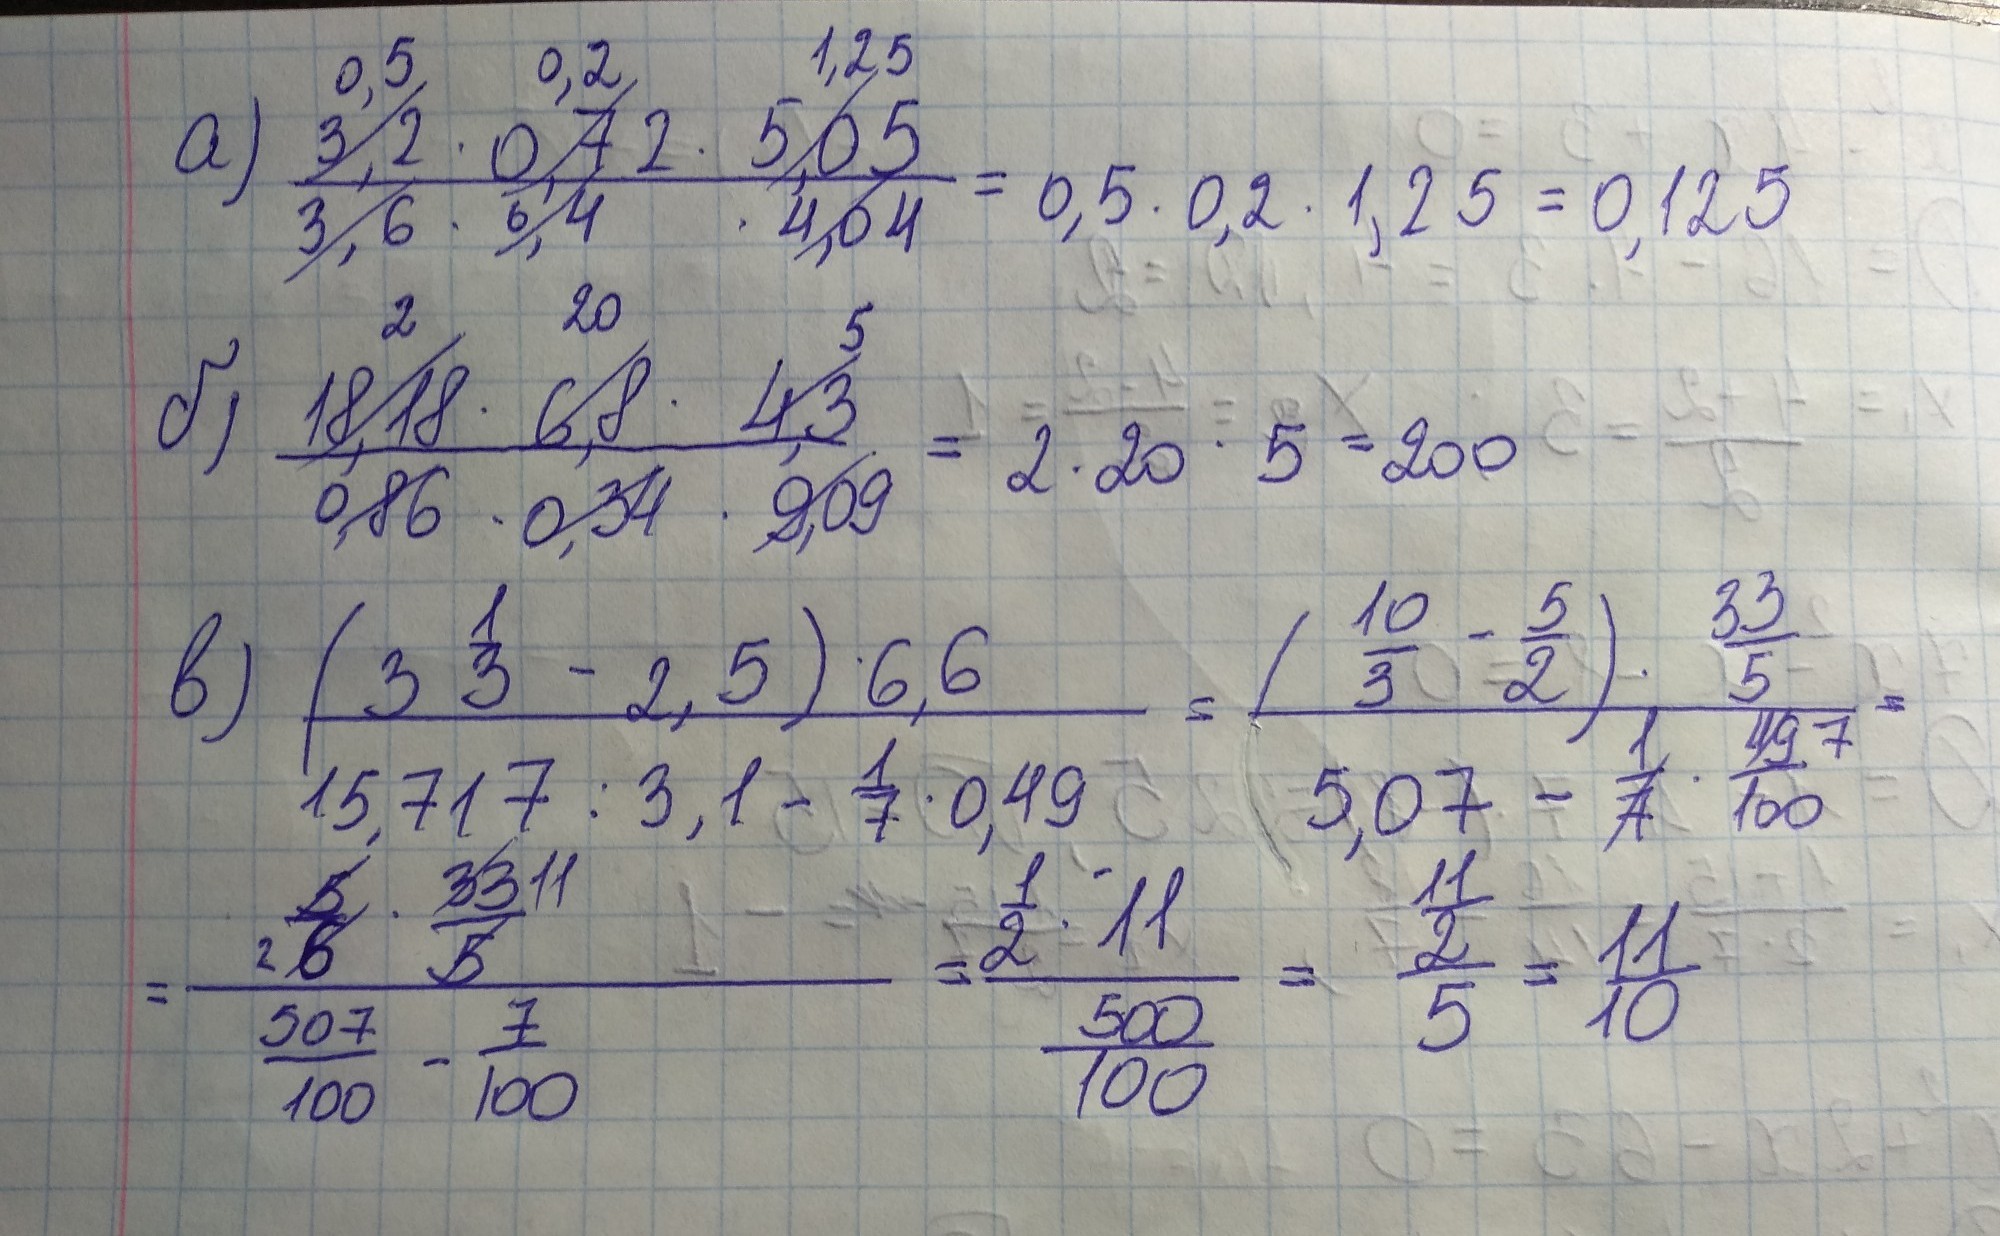 0,5 0,2 1,25
а) 3,2 · 0,72 · 5,05 / 3,6 · 6,4 · 4,04 = 0,5 · 0,2 · 1,25 = 0,125
2 20 5
б) 18,18 · 6,8 · 4,3 / 0,86 · 0,34 · 9,09 = 2 · 20 · 5 = 200
в) (3 1/3 - 2,5) · 6,6 / 15,717 : 3,1 - 1/7 · 0,49 = (10/3 - 5/2) · 33/5 / 5,07 - 1/7 · 49 7/100 =
= 5/6 2 · 33 11/5 / 507/100 - 7/100 = 1/2 · 11 / 500/100 = 11/2 / 5 = 11/10